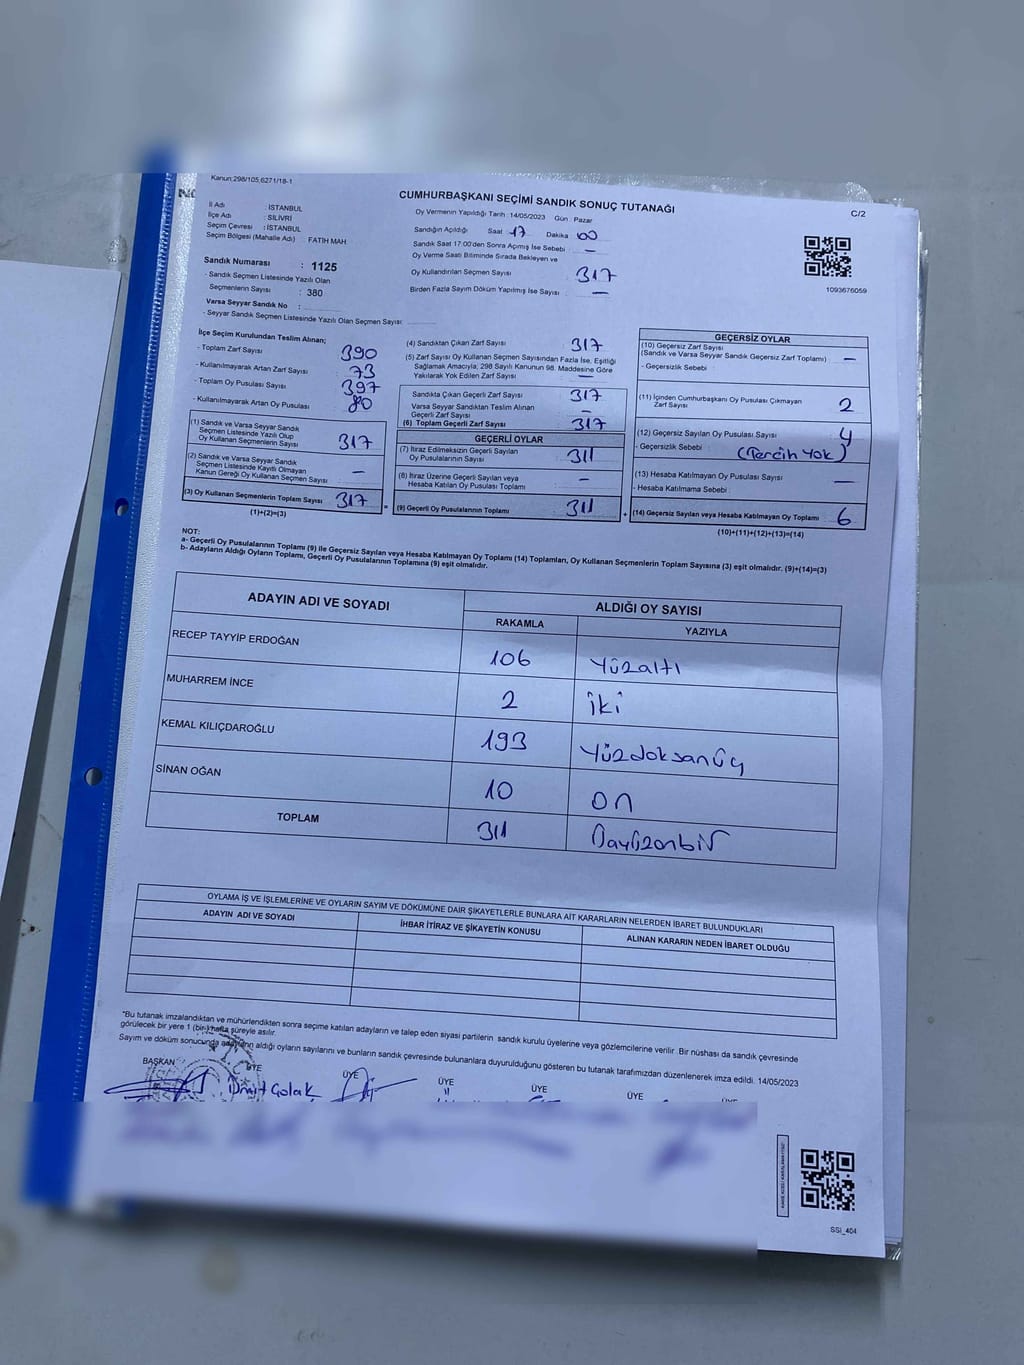 Kanun:298/105,6271/18-1
CUMHURBAŞKANI SEÇİMİ SANDIK SONUÇ TUTANAĞI
C/2
İl Adı : İSTANBUL
İlçe Adı : SİLİVRİ
Seçim Çevresi : İSTANBUL
Seçim Bölgesi (Mahalle Adı) FATİH MAH
Sandık Numarası : 1125
- Sandık Seçmen Listesinde Yazılı Olan
Seçmenlerin Sayısı : 380
Varsa Seyyar Sandık No :
- Seyyar Sandık Seçmen Listesinde Yazılı Olan Seçmen Sayısı:
Oy Vermenin Yapıldığı Tarih : 14/05/2023 Gün : Pazar
Sandığın Açıldığı Saat 17 Dakika 00
Sandık Saat 17:00'den Sonra Açımış İse Sebebi : —
Oy Verme Saati Bitiminde Sırada Bekleyen ve
Oy Kullandırılan Seçmen Sayısı : 317
Birden Fazla Sayım Döküm Yapılmış İse Sayısı : —
1093676059
İlçe Seçim Kurulundan Teslim Alınan;
- Toplam Zarf Sayısı 390
- Kullanılmayarak Artan Zarf Sayısı 73
- Toplam Oy Pusulası Sayısı 397
- Kullanılmayarak Artan Oy Pusulası 80
(1) Sandık ve Varsa Seyyar Sandık
Seçmen Listesinde Yazılı Olup
Oy Kullanan Seçmenlerin Sayısı 317
(2) Sandık ve Varsa Seyyar Sandık
Seçmen Listesinde Kayıtlı Olmayan
Kanun Gereği Oy Kullanan Seçmen Sayısı —
(3) Oy Kullanan Seçmenlerin Toplam Sayısı 317
(1)+(2)=(3)
(4) Sandıktan Çıkan Zarf Sayısı 317
(5) Zarf Sayısı Oy Kullanan Seçmen Sayısından Fazla İse, Eşitliği
Sağlamak Amacıyla; 298 Sayılı Kanunun 98. Maddesine Göre
Yakılarak Yok Edilen Zarf Sayısı —
Sandıkta Çıkan Geçerli Zarf Sayısı 317
Varsa Seyyar Sandıktan Teslim Alınan
Geçerli Zarf Sayısı —
(6) Toplam Geçerli Zarf Sayısı 317
GEÇERLİ OYLAR
(7) İtiraz Edilmeksizin Geçerli Sayılan
Oy Pusulalarının Sayısı 311
(8) İtiraz Üzerine Geçerli Sayılan veya
Hesaba Katılan Oy Pusulası Toplamı —
= (9) Geçerli Oy Pusulalarının Toplamı 311 +
GEÇERSİZ OYLAR
(10) Geçersiz Zarf Sayısı
(Sandık ve Varsa Seyyar Sandık Geçersiz Zarf Toplamı) —
- Geçersizlik Sebebi :
(11) İçinden Cumhurbaşkanı Oy Pusulası Çıkmayan
Zarf Sayısı 2
(12) Geçersiz Sayılan Oy Pusulası Sayısı 4
- Geçersizlik Sebebi : (Tercih Yok)
(13) Hesaba Katılmayan Oy Pusulası Sayısı —
- Hesaba Katılmama Sebebi :
(14) Geçersiz Sayılan veya Hesaba Katılmayan Oy Toplamı 6
(10)+(11)+(12)+(13)=(14)
NOT:
a- Geçerli Oy Pusulalarının Toplamı (9) ile Geçersiz Sayılan veya Hesaba Katılmayan Oy Toplamı (14) Toplamları, Oy Kullanan Seçmenlerin Toplam Sayısına (3) eşit olmalıdır. (9)+(14)=(3)
b- Adayların Aldığı Oyların Toplamı, Geçerli Oy Pusulalarının Toplamına (9) eşit olmalıdır.
ADAYIN ADI VE SOYADI ALDIĞI OY SAYISI
RAKAMLA YAZIYLA
RECEP TAYYİP ERDOĞAN 106 Yüzaltı
MUHARREM İNCE 2 İki
KEMAL KILIÇDAROĞLU 193 Yüzdoksanüç
SİNAN OĞAN 10 On
TOPLAM 311 Üçyüzonbir
OYLAMA İŞ VE İŞLEMLERİNE VE OYLARIN SAYIM VE DÖKÜMÜNE DAİR ŞİKAYETLERLE BUNLARA AİT KARARLARIN NELERDEN İBARET BULUNDUKLARI
ADAYIN ADI VE SOYADI İHBAR İTİRAZ VE ŞİKAYETİN KONUSU ALINAN KARARIN NEDEN İBARET OLDUĞU
*Bu tutanak imzalandıktan ve mühürlendikten sonra seçime katılan adayların ve talep eden siyasi partilerin sandık kurulu üyelerine veya gözlemcilerine verilir. Bir nüshası da sandık çevresinde
görülecek bir yere 1 (bir) hafta süreyle asılır.
Sayım ve döküm sonucunda adayların aldığı oyların sayılarını ve bunların sandık çevresinde bulunanlara duyurulduğunu gösteren bu tutanak tarafımızdan düzenlenerek imza edildi. 14/05/2023
BAŞKAN ÜYE ÜYE ÜYE ÜYE ÜYE ÜYE
Ümit Çolak
SSİ_404